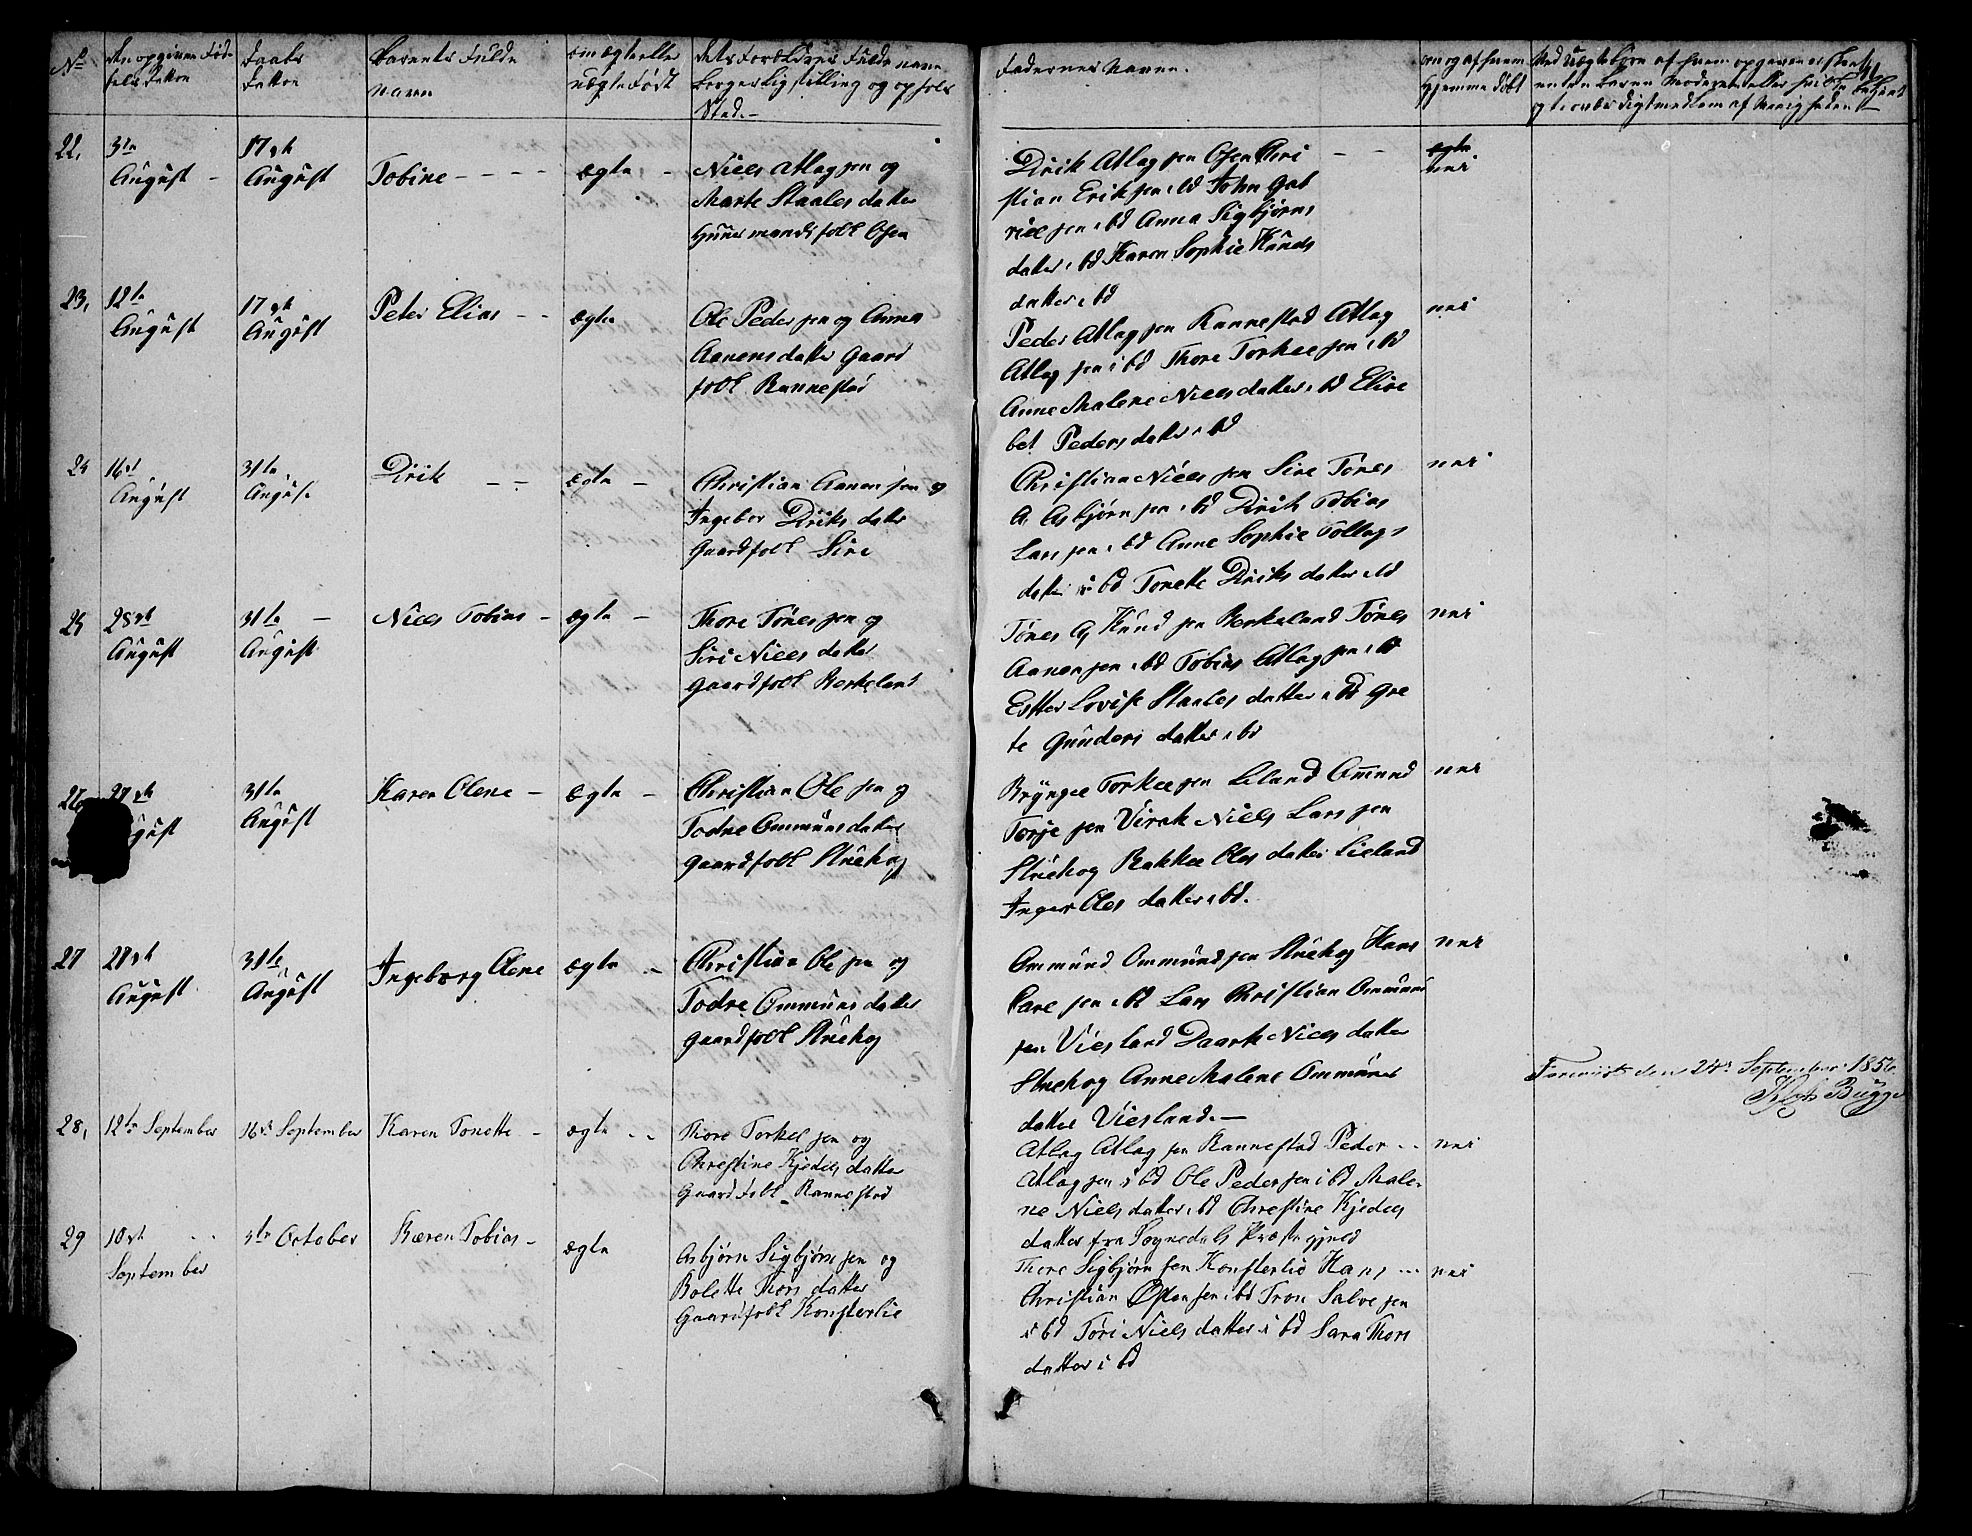 No
den opgivne Fød-
sels Datton
Daabs
Datton
Barnets Fulde
navn
om ægte eller
uægte Født
dets Forældrers Fulde navn
borgerlig stilling og ophols
Sted.-
Fadernes Navne.
om og af hvem
hjemme døbt
22,
3te
August -
17de
August
Tobine - - - -
ægte -
Niels Atlagsen og
Marte Staalesdatter
Huusmandsfolk Osen
Dirik Atlagsen Osen Chri - -
stian Eriksen i bd John Gab
rielsen i bd Anna Sigbjørns
datter i bd Karen Sophie Knuds
datter i bd
nei
23,
12te
August
17de
August
Peter Elias - -
ægte
Ole Pedersen og Anna
Aanensdatter Gaard
folk Rannestad
Peder Atlagsen Rannestad Atlag
Atlagsen i bd Thore Torkelsen i bd
Anne Malene Nielsdatter i bd Elisa
bet Pedersdatter i bd
nei
24
16de
August
31te
August
Dirik - -
ægte -
Christian Aanensen og
Ingebor Diriksdatter
Gaardfolk Sire
Christian Nielssen Sire Tønes
A Asbjørnsen i bd Dirik Tobias
Larssen i bd Anne Sophie Tollags
datter i bd Tonette Diriksdatter i bd
nei
25
28de
August
31te -
August
Niels Tobias -
ægte -
Thore Tønessen og
Siri Nielsdatter
Gaardfolk Berkeland
Tønes Aj Knudsen Berkeland Tønes
Aanensen i bd Tobias Atlagsen i bd
Ester Lovise Staalesdatter i bd Gre
te Gundersdatter i bd
nei
26
28de
August
31te
August
Karen Olene -
ægte -
Christian Olesen og
Todne Ommunsdatter
Gaardfolk Stuehog
Bryngel Torkelsen Lieland Omund
Torjesen Virak Niels Larssen
Stuehog Rakkel Olesdatter Lieland
Inger Olesdatter i bd.
nei
27
28de
August
31te
August
Ingeborg Olene
ægte -
Christian Olesen og
Todne Ommunsdatter
Gaardfolk Stuehog
Ommund Ommundsen Stuehog Hans
Carlsen i bd Lars Christian Ommund
sen Viesland Daarte Nielsdatter
Stuehog Anne Malene Ommuns
datter Viesland.-
nei
Foreviist den 24de September 1856
Bugge
28,
12te September
16de September
Karen Tonette -
ægte - -
Thore Torkelsen og
Christine Kjedelsdatter
Gaardfolk Rannestad
Atlag Atlagsen Rannestad Peder - -
Atlagsen i bd Ole Pedersen i bd Male-
ne Nielsdatter i bd Christine Kjedels
datter fra Sognedals Præstegjeld
nei
29
10de - -
September
5te October
Bæren Tobias -
ægte
Asbjørn Sigbjørnsen og
Bolette Thorsdatter
Gaardfolk Konsterlie
Thore Sigbjørnsen Konsterlie Hans - - -
Christian Østensen i bd Tron Salvesen
i bd Tøri Nielsdatter i bd Sara Thors
datter i bd
nei